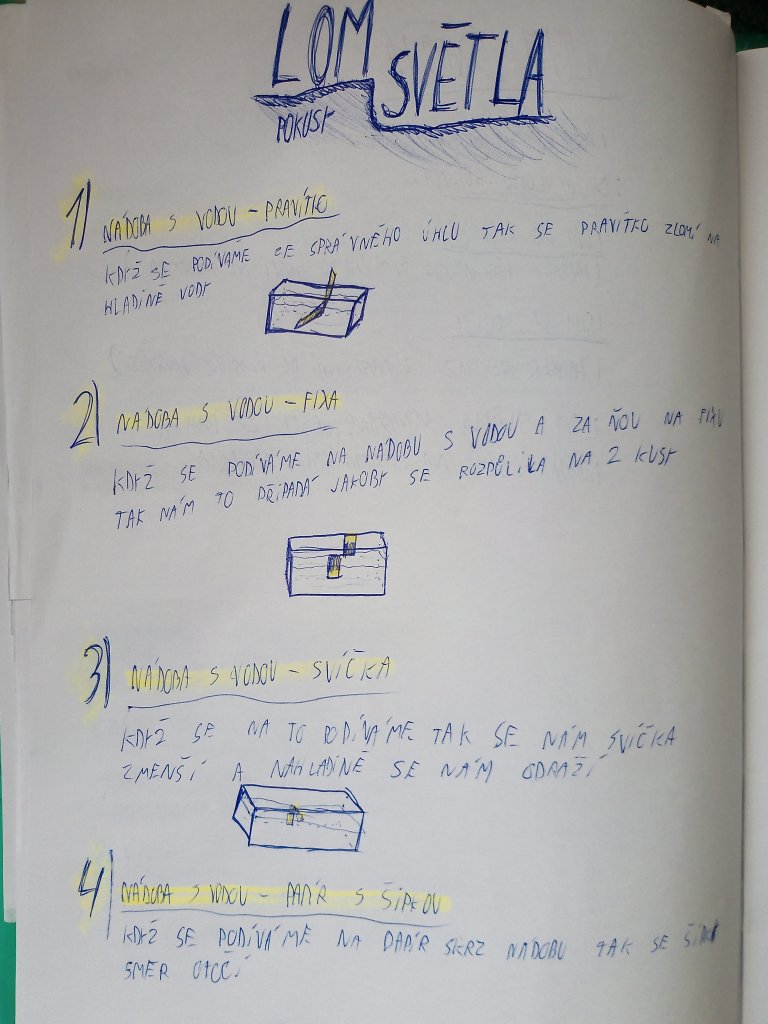 LOM
SVĚTLA
POKUSY
1) NÁDOBA S VODOU - PRAVÍTKO
KDYŽ SE PODÍVÁME ZE SPRÁVNÉHO ÚHLU TAK SE PRAVÍTKO ZLOMÍ NA
HLADINĚ VODY
2) NÁDOBA S VODOU - FIXA
KDYŽ SE PODÍVÁME NA NÁDOBU S VODOU A ZA ŇOU NA FIXU
TAK NÁM TO PŘIPADÁ JAKOBY SE ROZPŮLILA NA 2 KUSY
3) NÁDOBA S VODOU - SVÍČKA
KDYŽ SE NA TO PODÍVÁME TAK SE NÁM SVÍČKA
ZMENŠÍ A NAHLADINĚ SE NÁM ODRAŽÍ
4) NÁDOBA S VODOU - PAPÍR S ŠIPKOU
KDYŽ SE PODÍVÁME NA PAPÍR SKRZ NÁDOBU TAK SE
SMĚR OTOČÍ